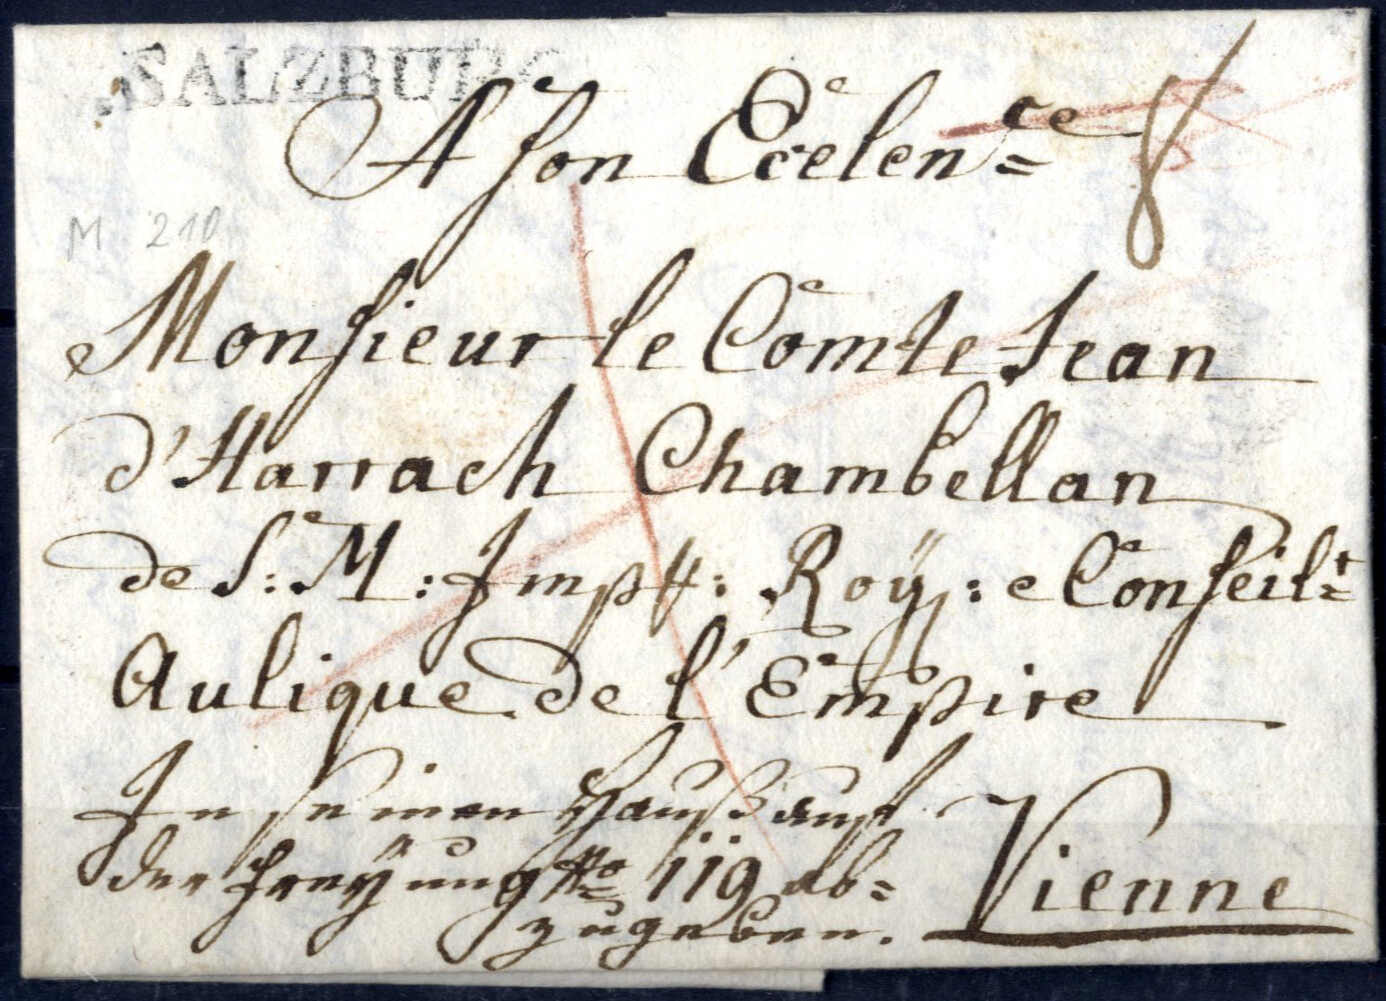 SALZBURG
8
A son Ecelen.ce
M 210
Monsieur le Comte Jean
d'Harrach Chambellan
de S: M: Imp: Roy: e Conseil.r
Aulique de l'Empire
In seinen Hauß auf
der Freyung No 119 ab=
zugeben. Vienne